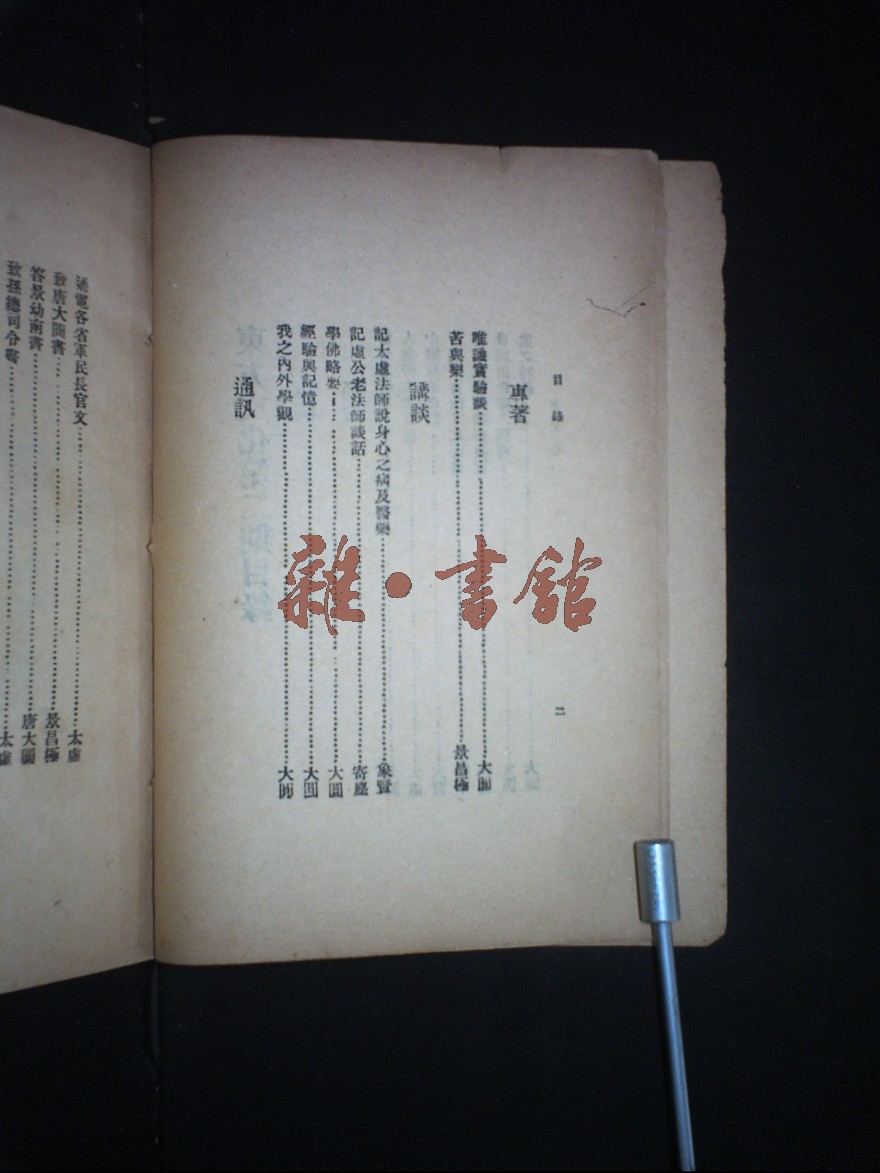 目錄
二
專著
唯識實驗談 大圓
苦與樂 景昌極
講談
記太虛法師說身心之病及醫藥 象賢
記虛公老法師談話 寄塵
學佛略要 大圓
經驗與記憶 大圓
我之內外學觀 大圓
通訊
通電各省軍民長官文 太虛
致唐大圓書 景昌極
答景幼南書 唐大圓
致孫總司令書 太虛
雜·書館